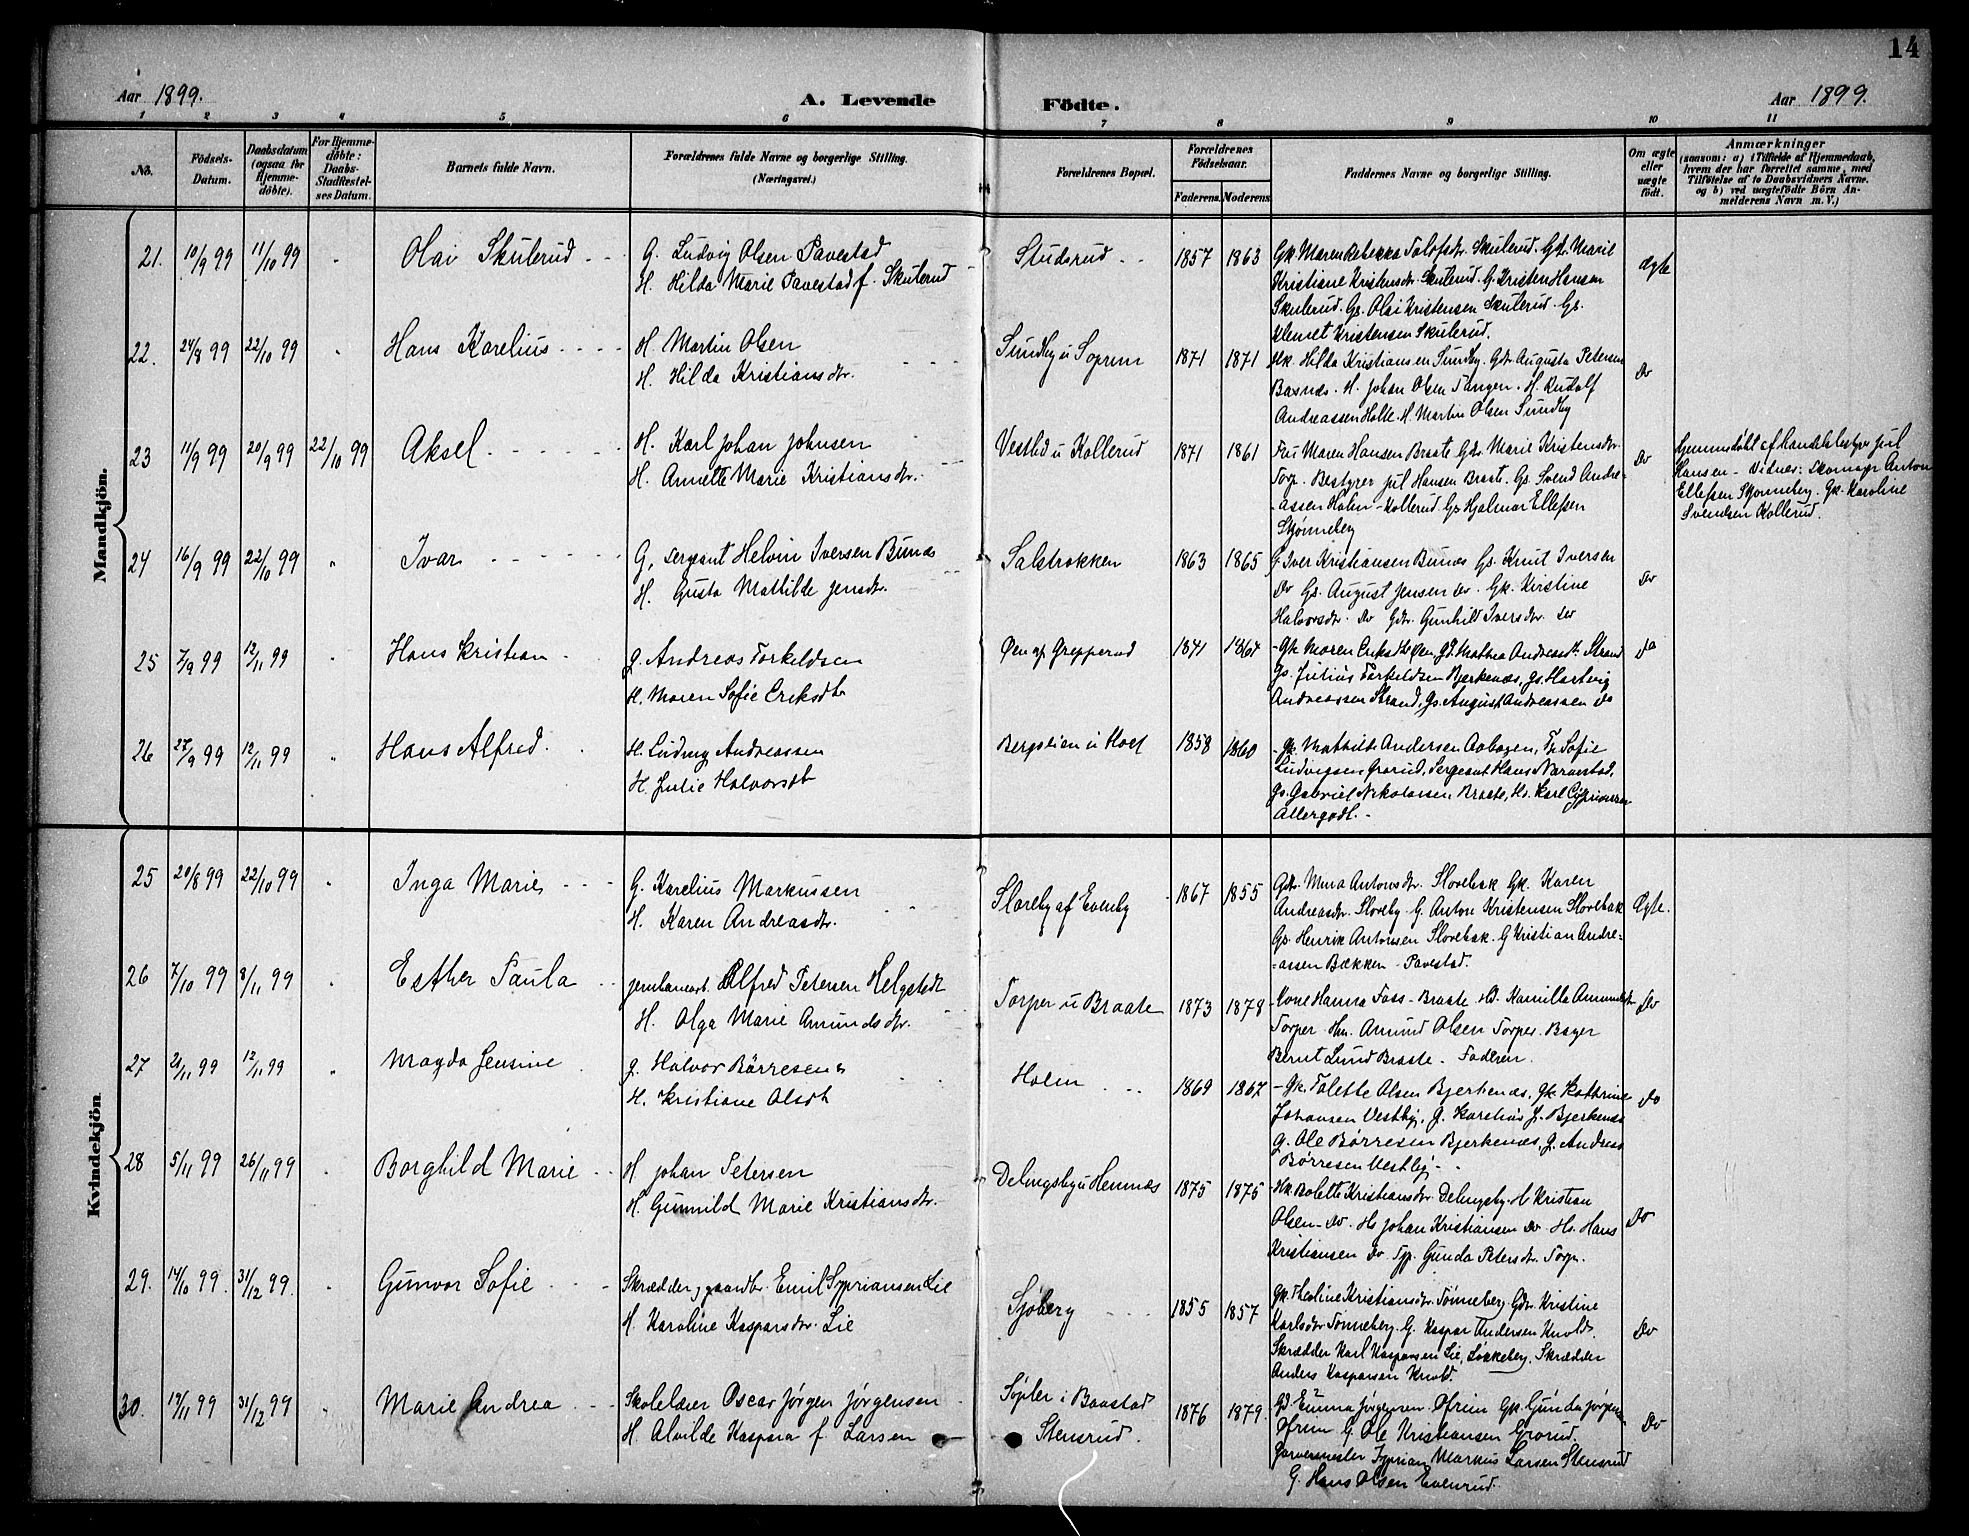 14
Aar 1899.
A. Levende
Födte.
Aar 1899.
1 2 3 4 5 6 7 8 9 10 11
No.
Födsels-
Datum.
Daabsdatum
(ogsaa for
Hjemme-
döbte).
For Hjemme-
döbte:
Daabs-
Stadfæstel-
ses Datum.
Barnets fulde Navn.
Forældrenes fulde Navne og borgerlige Stilling.
(Næringsvei.)
Forældrenes Bopæl.
Forældrenes
Födselsaar.
Faderens. Moderens.
Faddernes Navne og borgerlige Stilling.
Om ægte
eller
uægte
födt.
Anmærkninger
(saasom: a) i Tilfælde af Hjemmedaab,
hvem der har forrettet samme, med
Tilföielse af to Daabsvidners Navne.
og b) ved uægtefödte Börn An-
melderens Navn m. V.)
Mandkjön.
21. 10/9 99 11/10 99 " Olai Skulerud
G. Ludvig Olsen Pavestad
H. Hilda Marie Pavestad f. Skulerud
Studsrud 1857 1863
Gk. Maren Rebekka Tolofsdtr. Skulerud. Gdr. Marie
Kristiane Kristensdtr. Skulerud. G. Kristen Hansen
Skulerud. Gs. Olai Kristensen Skulerud. Gs.
Klemet Kristensen Skulerud.
Ægte
22. 24/8 99 22/10 99 " Hans Karelius
H. Martin Olsen
H. Hilda Kristiansdtr.
Sundby u Soprem 1871 1871
Hk. Hilda Kristiansen Sundby. Gdr. Augusta Petersen
Basnæs. H. Johan Olsen Tangen. H. Rudolf
Andreassen Holte. H. Martin Olsen Sundby
Do
23 11/9 99 20/9 99 22/10 99 Aksel
H. Karl Johan Johnsen
H. Annette Marie Kristiansdtr.
Vestled u Kollerud 1871 1861
Fru Maren Hansen Braate. Gdr. Marie Kristensdtr.
Torp. Bestyrer Jul Hansen Braate. Gs. Svend Andre-
-assen Holm-Kollerud. Gs Hjalmar Ellefsen
Skjønneby
Do
Hjemmedøbt af Handelsbestyr Jul
Hansen - Vidner: Skomagr Anton
Ellefsen Skjønneberg. Gk. Karoline
Svendsen Kollerud.
24 16/9 99 22/10 99 " Ivar
G, Sergeant Helvin Iversen Bunæs
H. Gusta Mathilde Jensdtr.
Salstrokken 1863 1865
G. Iver Kristiansen Bunæs Gs. Knut Iversen
Do Gs. August Jensen do. Gk. Kirstine
Halvorsdtr. Do Gdr. Gunhild Iversdtr. do
Do
25 7/9 99 12/11 99 " Hans Kristian
G. Andreas Torkeldsen
H. Maren Sofie Eriksdtr
Øen af Grepperud 1841 1867
Gk Maren Eriksdtr Øen, Gd. Mathea Andreasdt. Strand
Gs. Julius Torkeldsen Bjerkenæs, Gs. Hartvig
Andreassen Strand, Gs. August Andreassen do
Do
26 27/9 99 12/11 99 " Hans Alfred.
H. Ludvig Andreassen
H. Julie Halvorsdt
Bergslien u Hoel 1858 1860
Gk. Mathilde Andersen Aabogen, Tp Sofie
Ludvigsen Grorud, Sergeant Hans Narvestad,
Gs. Gabriel Nikolaisen, Braate, Hs. Karl Cypriansen
Allergodt.
Kvindekjön.
25 20/8 99 22/10 99 " Inga Marie
G. Karelius Markussen
H. Karen Andreasdtr.
Sloreby af Evenby 1867 1855
Gdr. Mina Antonsdtr. Slorebak Gk. Karen
Andreasdtr. Sloreby. G. Anton Kristensen Slorebak
Gs. Henrik Antonsen Slorebak. G Kristian Andre-
-assen Bækken - Pavestad.
Ægte.
26 7/10 99 8/11 99 " Esther Paula
Jernbanearb. Alfred Petersen Helgstedt
H. Olga Marie Amundsdtr.
Torper u Braate 1873 1878
Kone Hanna Foss - Braate Hd. Kamilla Amundsdtr
Torper Hm. Amund Olsen Torper. Bager
Bernt Lund Braate. Faderen.
Do
27 2/11 99 12/11 99 " Magda Jensine
G. Halvor Børresen
H. Kristiane Olsdt
Holm 1869 1867
Gk. Tolette Olsen Bjerkenæs, Gk Kathrine
Johansen Vestby, G. Karelius J. Bjerkenæs
G. Ole Børresen Bjerkenæs, G. Andreas
Børresen Vestby.
Do
28 5/11 99 26/11 99 " Borghild Marie
H Johan Petersen
H. Gunnild Marie Kristiansdtr.
Delingsby u Hemnæs 1875 1875
Hk. Bolette Kristiansdtr Delingsby. H Kristian
Olsen - Do. Hs Johan Kristiansen Do Hs. Hans
Kristiansen Do Tjp. Gunda Petersdtr. Torp.
Do
29. 14/10 99. 31/12 99. " Gunvor Sofie
Skrædder, gaardbr. Emil Sypriansen Lie
H Karoline Kaspersdtr. Lie
Sjøberg 1855 1857
Gk. Theoline Kristiansdtr Tønneberg. Gdr. Kristine
Karlsdtr Tønneberg. G. Kaspar Andersen Knold.
Skrædder Karl Kaspersen Lie, Løkkeberg. Skrædder
Anders Kaspersen Knold.
Do
30. 19/11 99 31/12 99 " Marie Andrea
Skolelærer Oscar Jørgen Jørgensen
H. Alvilde Kaspara f. Larsen
Søpler i Baastad
Stensrud. 1876 1879.
Gd. Emma Jørgensen Ofrim Gk. Gunda Jørgensen
Ofrim G Ole Kristiansen Grorud.
Garvermester Syprian Markus Larsen Stensrud
G. Hans Olsen Evenrud.
Do